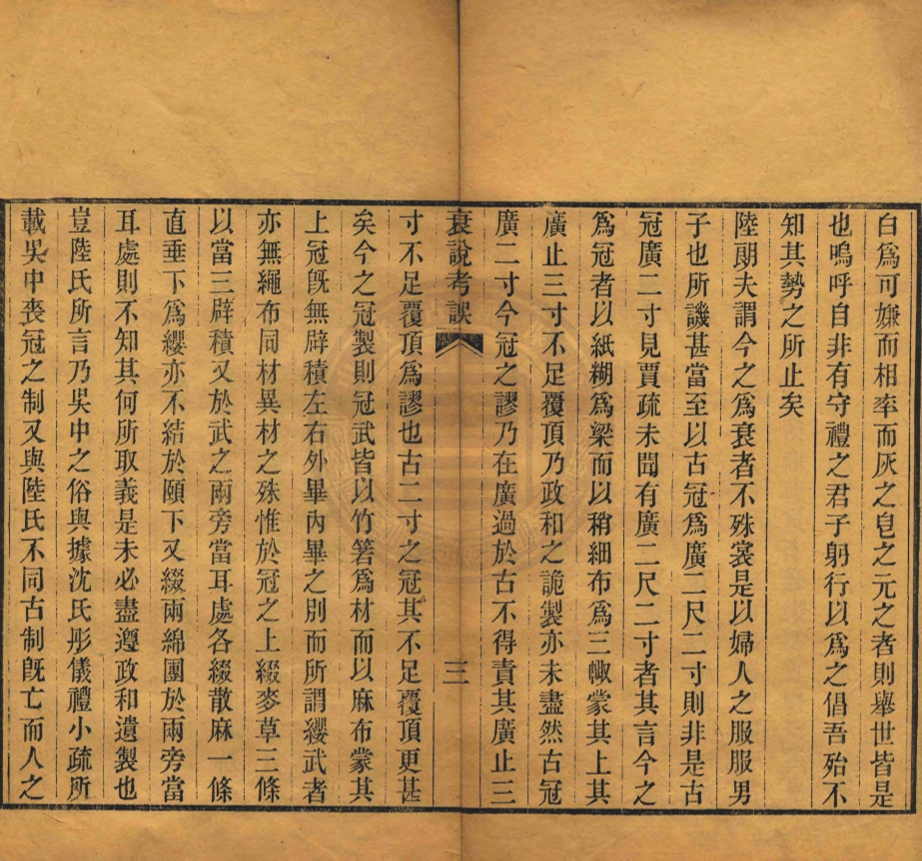 白爲可嫌而相率而灰之皂之元之者則舉世皆是
也嗚呼自非有守禮之君子躬行以爲之倡吾殆不
知其勢之所止矣
陸朗夫謂今之爲衰者不殊裳是以婦人之服服男
子也所譏甚當至以古冠爲廣二尺二寸則非是古
冠廣二寸見賈疏未聞有廣二尺二寸者其言今之
爲冠者以紙糊爲梁而以稍細布爲三㡇蒙其上其
廣止三寸不足覆頂乃政和之詭製亦未盡然古冠
廣二寸今冠之謬乃在廣過於古不得責其廣止三
衰說考誤
三
寸不足覆頂爲謬也古二寸之冠其不足覆頂更甚
矣今之冠製則冠武皆以竹箬爲材而以麻布蒙其
上冠旣無辟積左右外畢內畢之別而所謂纓武者
亦無繩布同材異材之殊惟於冠之上綴麥草三條
以當三辟積又於武之兩旁當耳處各綴散麻一條
直垂下爲纓亦不結於頤下又綴兩綿團於兩旁當
耳處則不知其何所取義是未必盡遵政和遺製也
豈陸氏所言乃吳中之俗與據沈氏彤儀禮小疏所
載吳中喪冠之制又與陸氏不同古制旣亡而人之